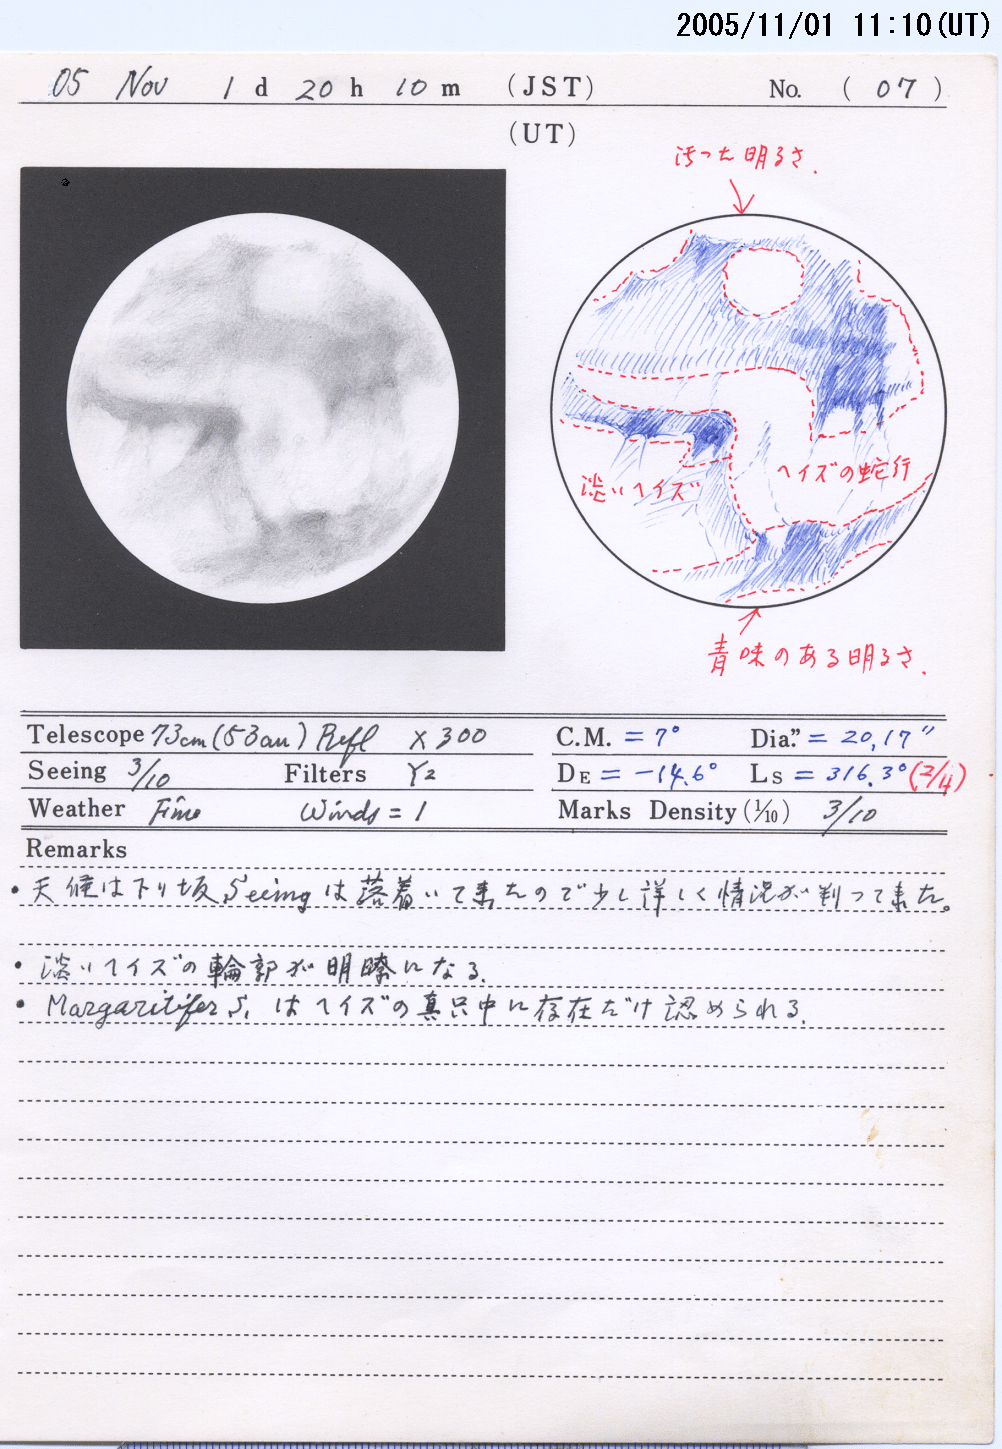 2005/11/01 11:10(UT)
05 Nov 1 d 20 h 10 m (JST) No. ( 07 )
(UT)
汚った明るさ.
淡いヘイズ
ヘイズの蛇行
青味のある明るさ.
Telescope 73cm(53cm) Refl × 300
C.M. = 7° Dia." = 20.17"
Seeing 3/10 Filters Y2
DE = -14.6° Ls = 316.3° (2/4)
Weather Fine Winds = 1
Marks Density (1/10) 3/10
Remarks
• 天候は下り坂、Seeingは落着いて来たので少し詳しく情況が判って来た。
• 淡いヘイズの輪郭が明瞭になる.
• Margaritifer S. はヘイズの真只中に存在だけ認められる.